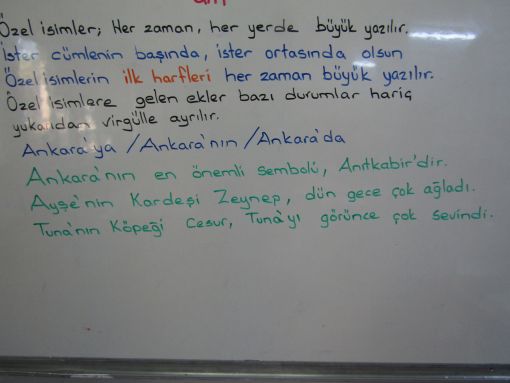 Özel isimler; Her zaman, her yerde büyük yazılır.
İster cümlenin başında, ister ortasında olsun
Özel isimlerin ilk harfleri her zaman büyük yazılır.
Özel isimlere gelen ekler bazı durumlar hariç
yukarıdan virgülle ayrılır.
Ankara'ya / Ankara'nın / Ankara'da
Ankara'nın en önemli sembolü, Anıtkabir'dir.
Ayşe'nin Kardeşi Zeynep, dün gece çok ağladı.
Tuna'nın Köpeği Cesur, Tuna'yı görünce çok sevindi.